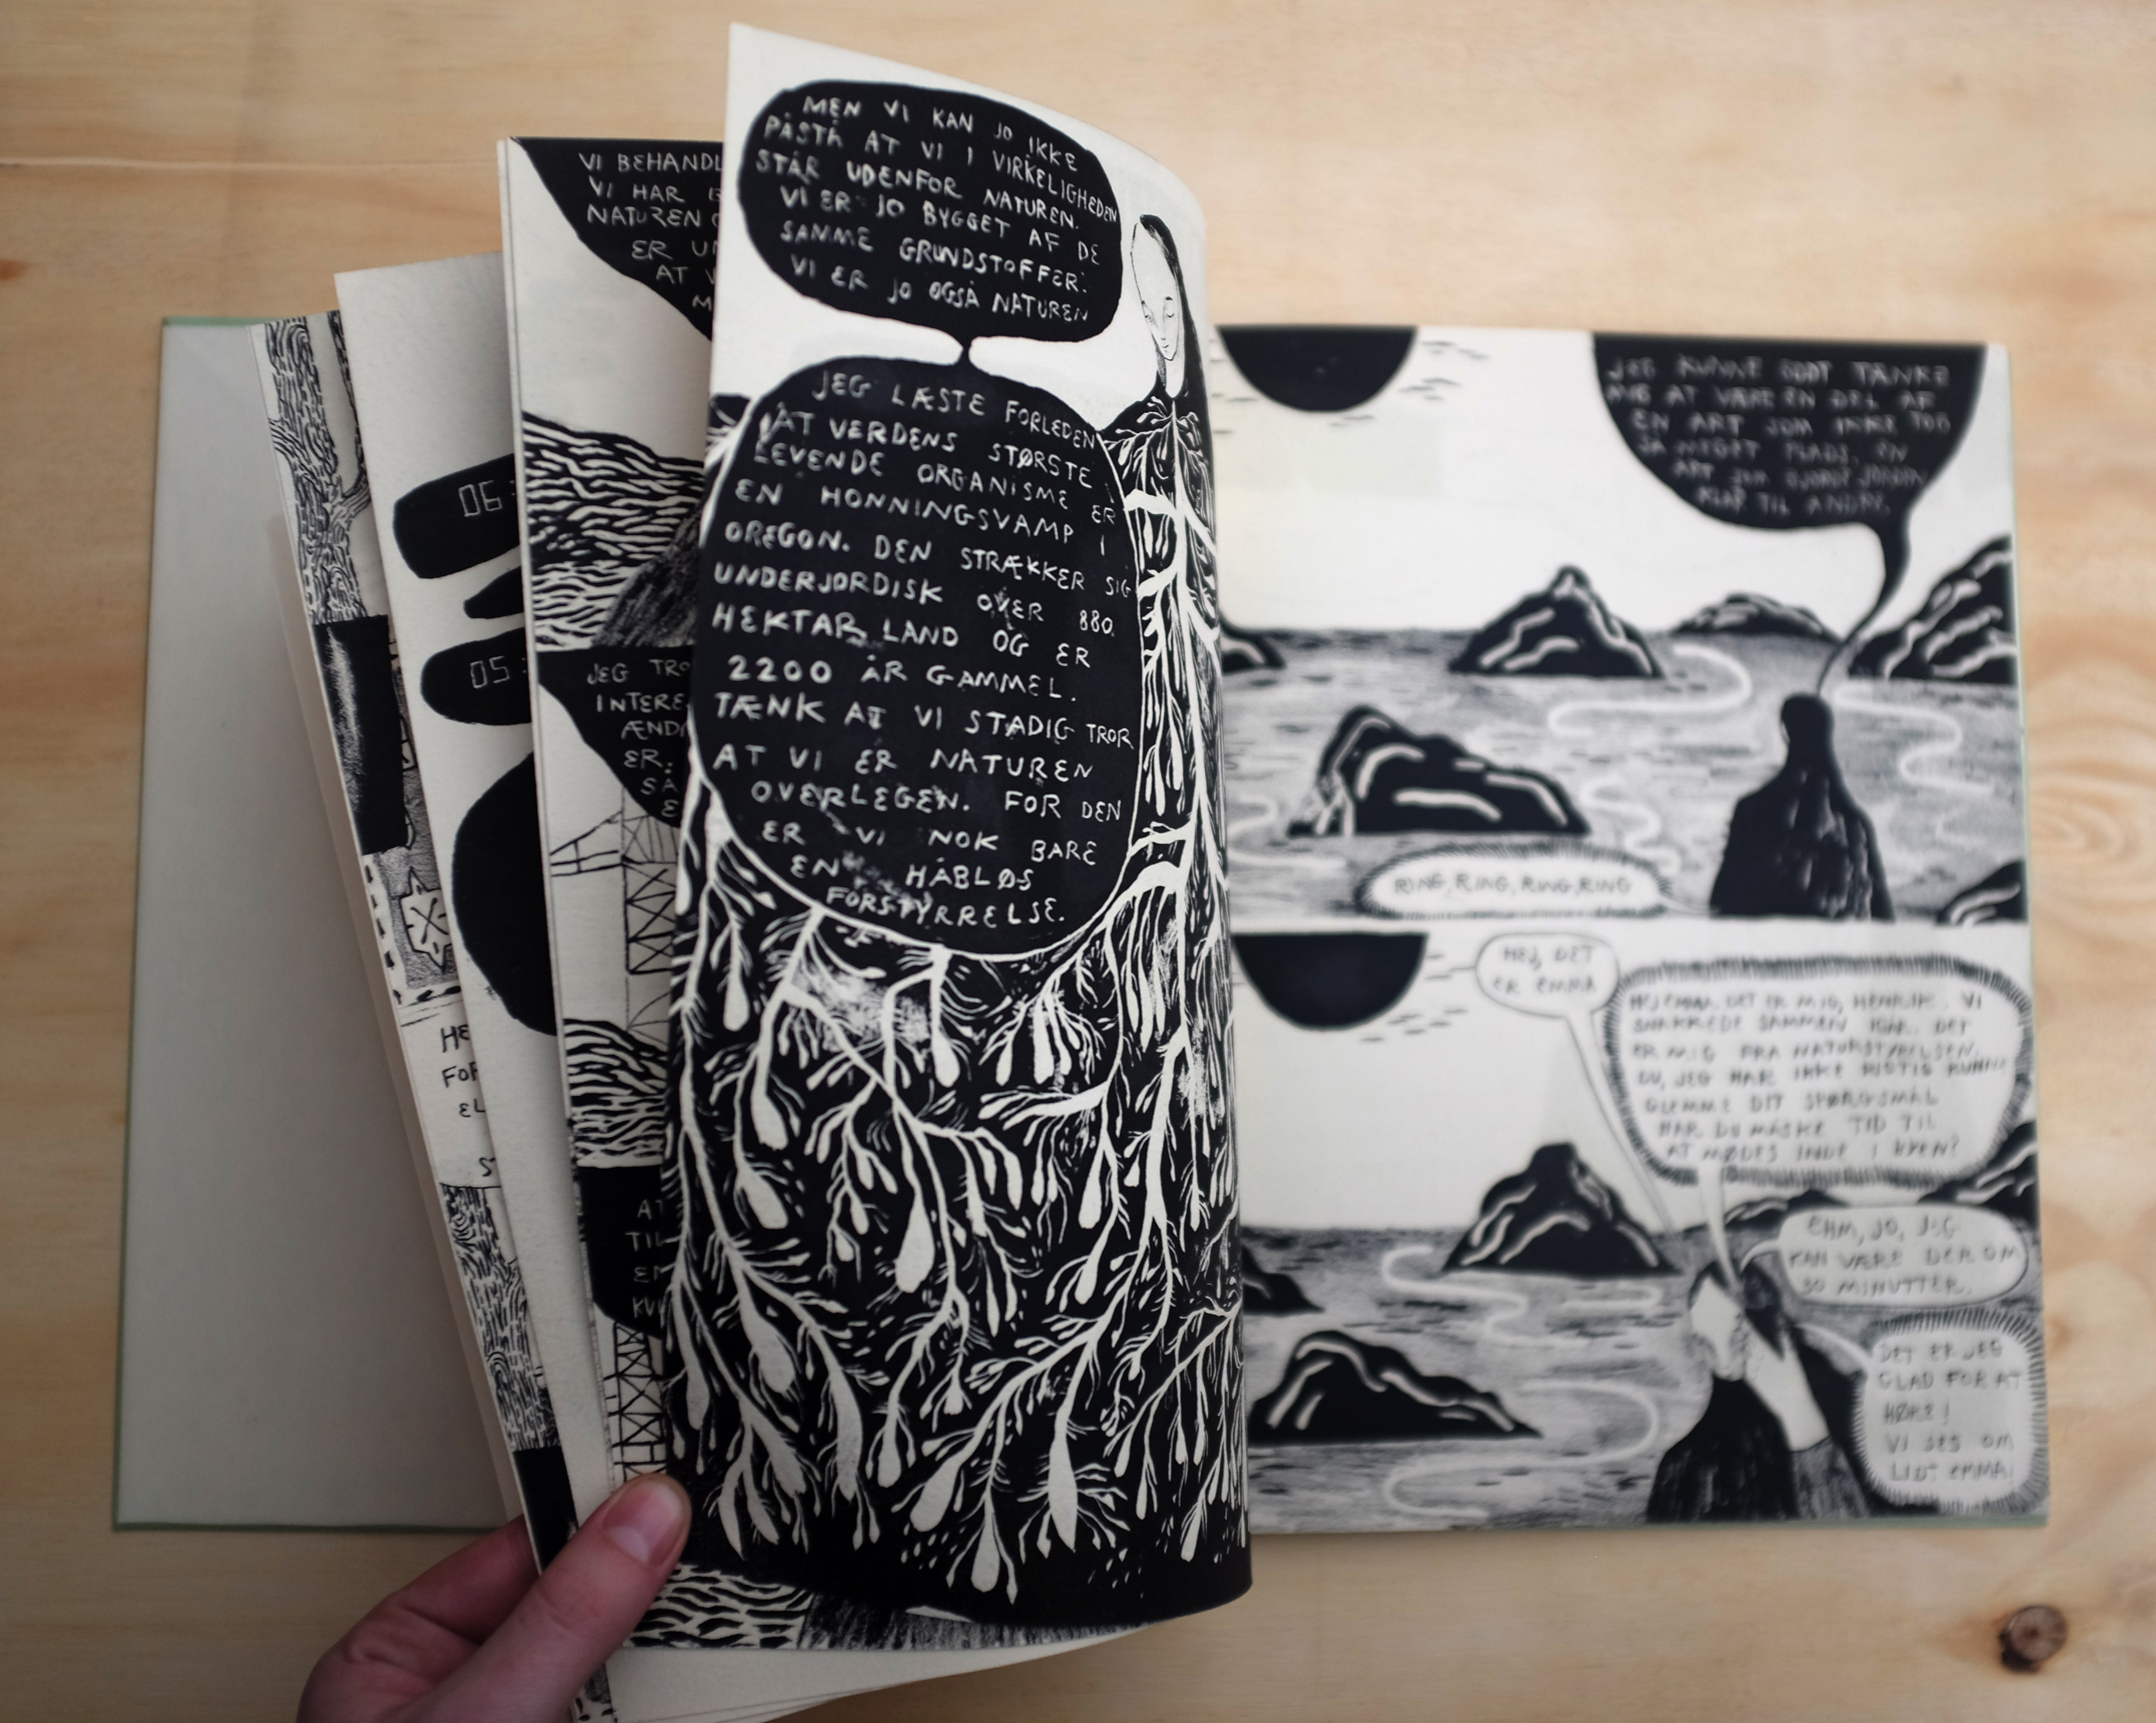 VI BEHANDL
VI HAR
NATUREN
ER
AT
06:
05:
JEG TRO
INTERE
ÆND
ER.
SÅ
HE
FOR
EL
S
AT
TIL
MEN VI KAN JO IKKE
PÅSTÅ AT VI I VIRKELIGHEDEN
STÅR UDENFOR NATUREN.
VI ER JO BYGGET AF DE
SAMME GRUNDSTOFFER.
VI ER JO OGSÅ NATUREN
JEG LÆSTE FORLEDEN
AT VERDENS STØRSTE
LEVENDE ORGANISME ER
EN HONNINGSVAMP I
OREGON. DEN STRÆKKER SIG
UNDERJORDISK OVER 880
HEKTAR LAND OG ER
2200 ÅR GAMMEL.
TÆNK AT VI STADIG TROR
AT VI ER NATUREN
OVERLEGEN. FOR DEN
ER VI NOK BARE
EN HÅBLØS
FORSTYRRELSE.
JEG KUNNE GODT TÆNKE
MIG AT VÆRE EN DEL AF
EN ART SOM IKKE TOG
SÅ MEGET PLADS. EN
ART SOM GJORDE JORDEN
KLAR TIL ANDRE.
RING, RING, RING, RING
HEJ, DET
ER EMMA
HEJ EMMA. DET ER MIG, HENRIK. VI
SNAKKEDE SAMMEN IGÅR. DET
ER MIG FRA NATURSTYRELSEN.
DU, JEG HAR IKKE RIGTIG KUNNE
GLEMME DIT SPØRGSMÅL
HAR DU MÅSKE TID TIL
AT MØDES INDE I BYEN?
EHM, JO, JEG
KAN VÆRE DER OM
30 MINUTTER.
DET ER JEG
GLAD FOR AT
HØRE!
VI SES OM
LIDT EMMA.